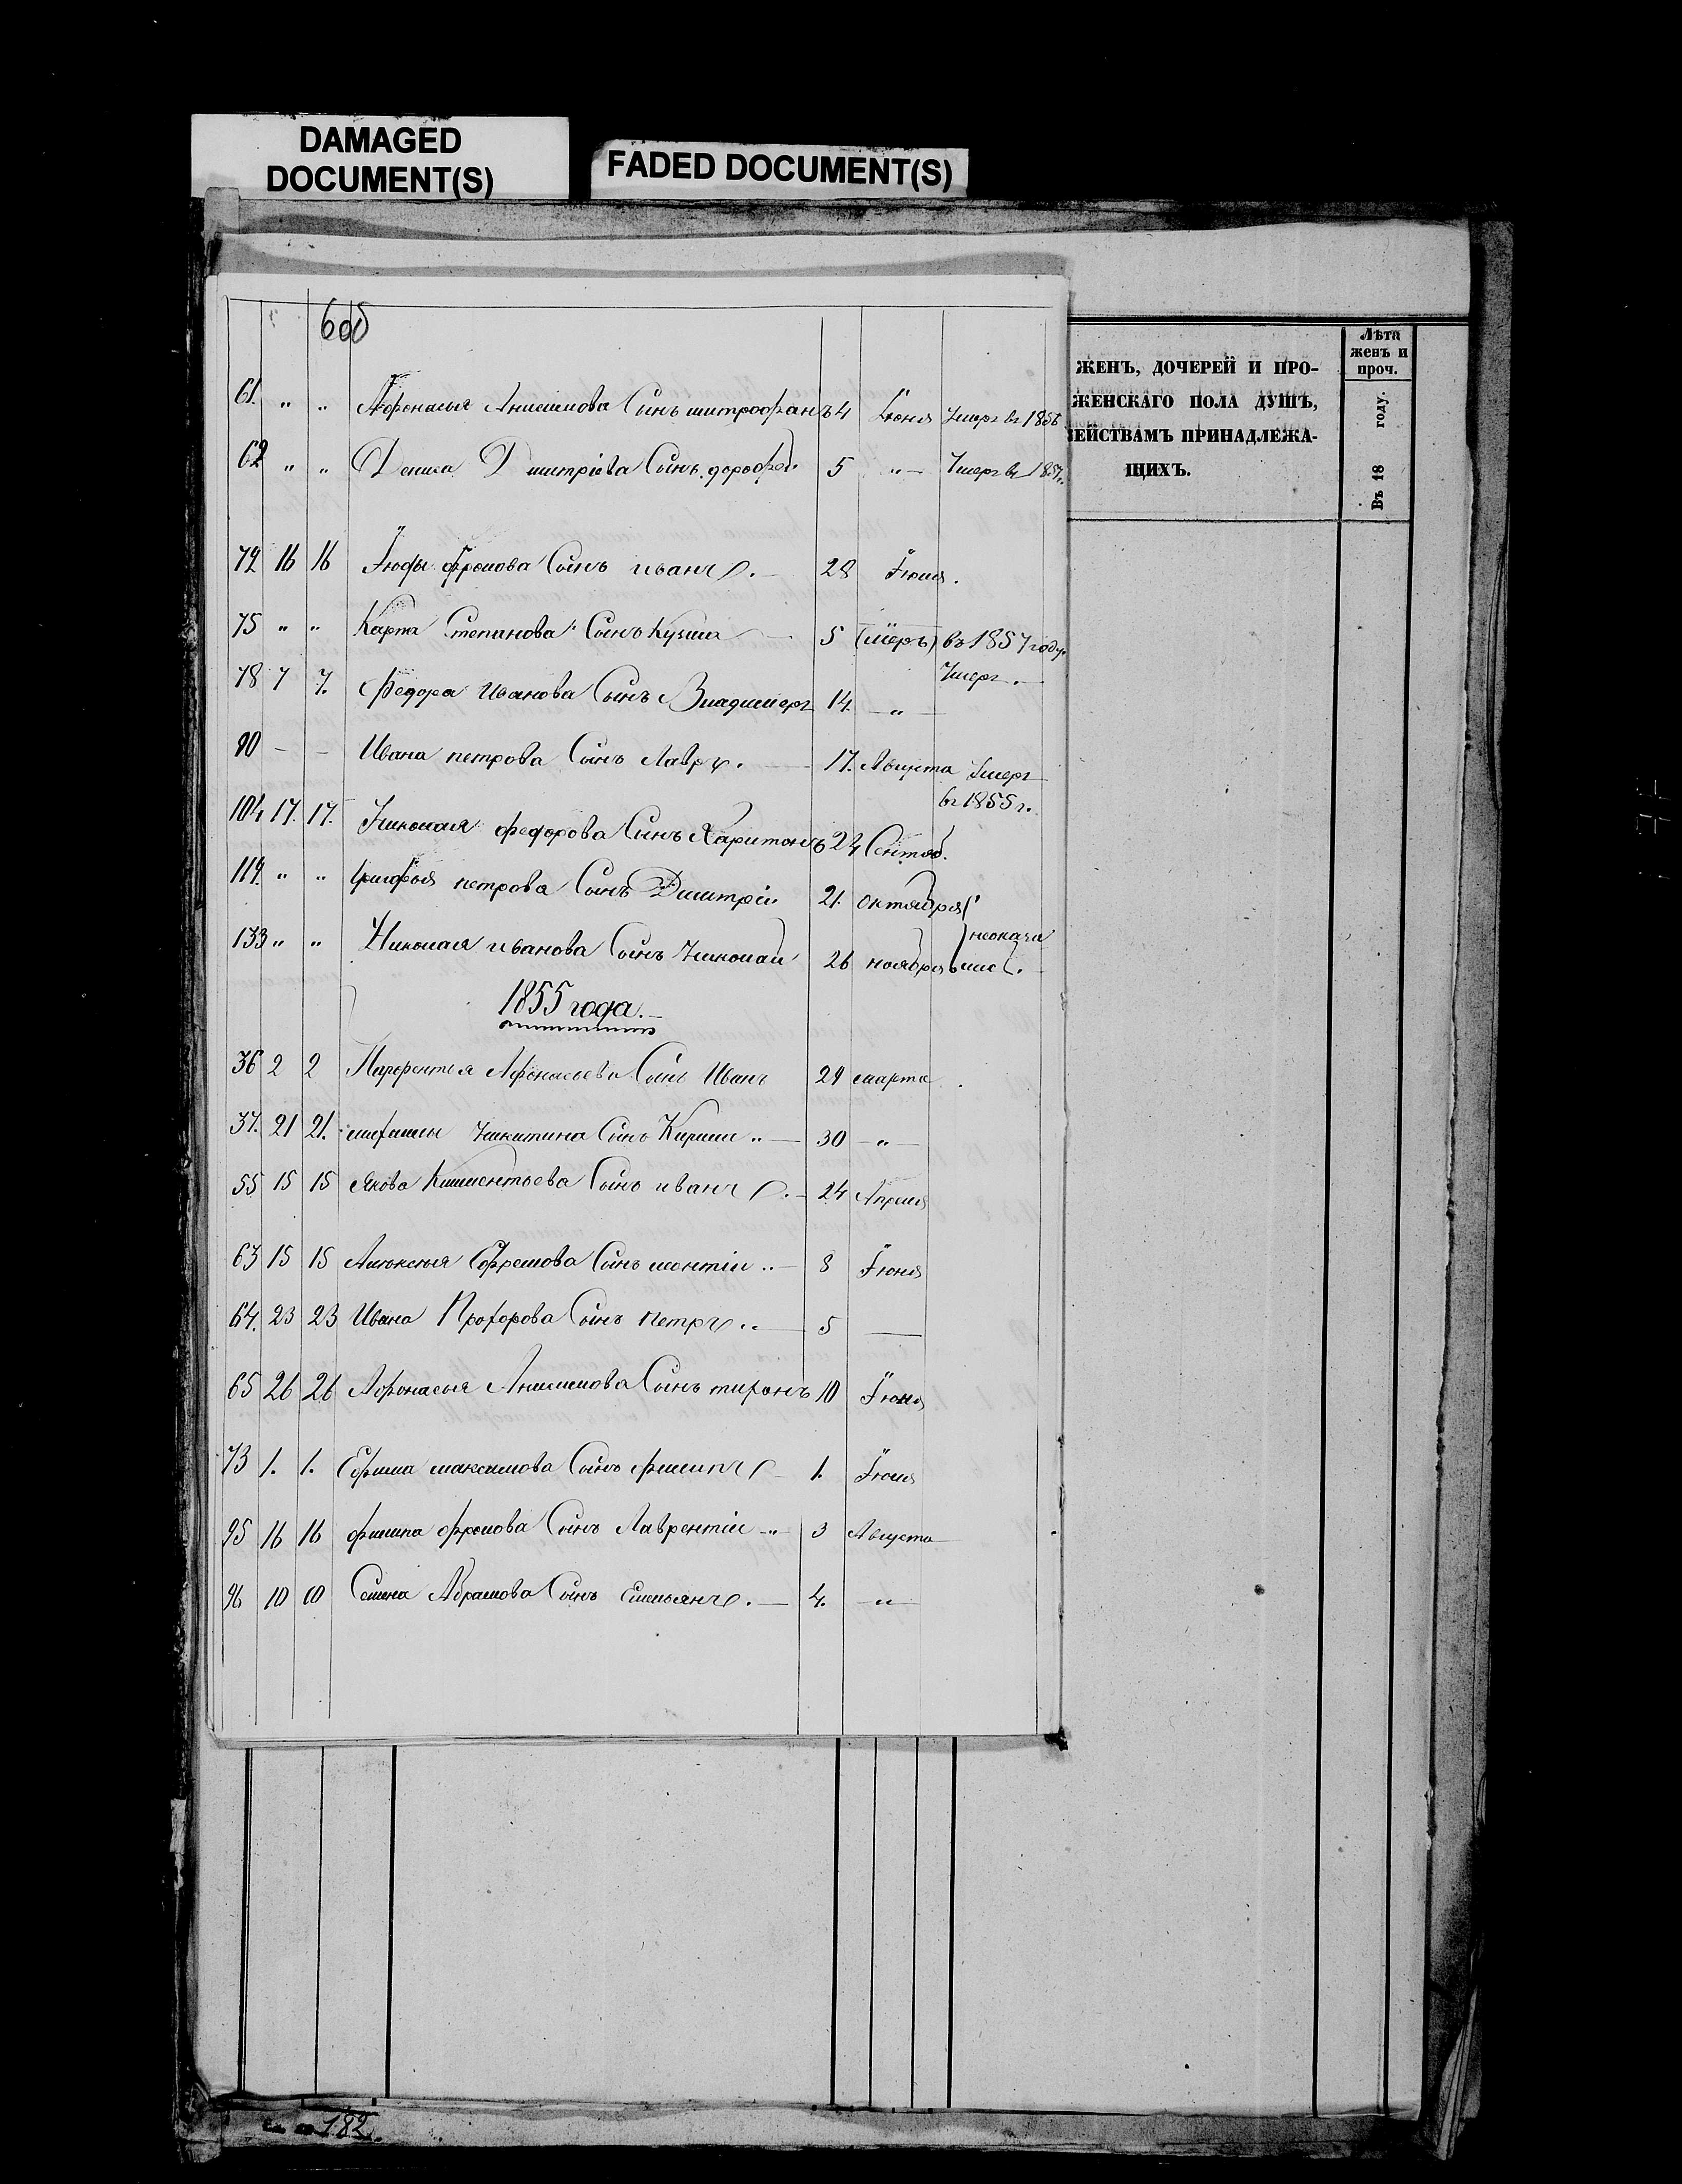 DAMAGED
DOCUMENT(S)
FADED DOCUMENT(S)
ЖЕНЪ, ДОЧЕРЕЙ И ПРО-
ЖЕНСКАГО ПОЛА ДУШЪ,
ЕЙСТВАМЪ ПРИНАДЛЕЖА-
ЩИХЪ.
Лѣта
женъ и
проч.
Въ 18 году.
61. " " Афонасья Анисимова Сынъ митрофанъ 4 Іюня Умеръ въ 1856
62 " " Дениса Дмитріева Сынъ дорофей 5 " Умеръ въ 1857
72 16 16 фролова Сынъ иванъ. 28 Іюля.
75 " " Карпа Степанова Сынъ Кузма 5 (умеръ) въ 1857 году.
78 7 7. Федора Иванова Сынъ Владимеръ 14. " Умеръ.
90 - - Ивана петрова Сынъ Лавръ. 17. Августа Умеръ
въ 1855 г.
104 17. 17. Николая федорова Сынъ Харитонъ 24 Сентяб.
119. " " петрова Сынъ Дмитрій 21. октября
133 " " Николая иванова Сынъ Николай 26 ноября
1855 года.
36 2 2 Парфентья Афонасьева Сынъ Иванъ 29 марта
37. 21 21. Никитина Сынъ Кирила 30 "
55 15 15 Якова Климентьева Сынъ иванъ. 24 Апреля
63 15 15 Алексѣя Ефремова Сынъ леонтій 8 Іюня
64. 23 23 Ивана Прохорова Сынъ петръ 5 —
65 26 26 Афонасья Анисимова Сынъ тихонъ 10 Іюня
73 1. 1. Ефима максимова Сынъ филипъ 1. Іюля
95 16 16 филипа фролова Сынъ Лаврентій 3 Августа
96 10 10 Семена Абрамова Сынъ Емельянъ. 4. "
182.